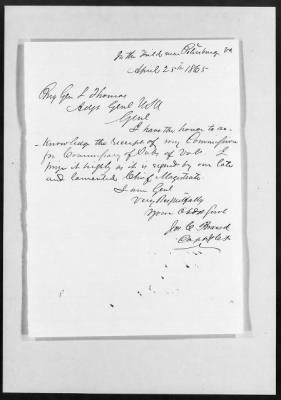 In the Field near Petersburg Va
April 25th 1865
Brig Gen L Thomas
Adjt Genl USA
Genl
I have the honor to ac-
-knowledge the receipt of my Commission
for Commissary of Subs of Vols I
prize it highly as it is signed by our late
and lamented Chief Magistrate
I am Genl
Very Respectfully
Your Obdt Servt
Jno C
Capt & C.S.